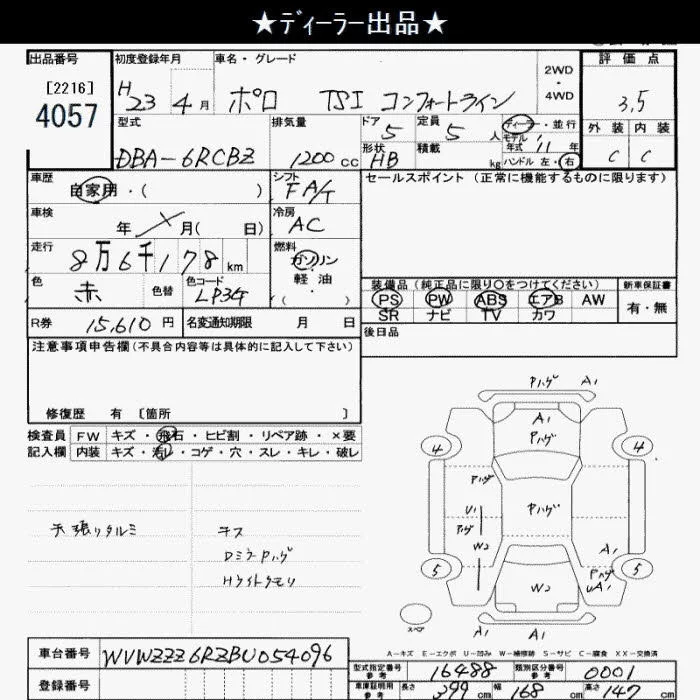 ★ディーラー出品★
出品番号 初度登録年月 車名・グレード 2WD・4WD 評価点
[2216] 4057 H23 4月 ポロ TSI コンフォートライン 3.5
型式 排気量 ドア 5 定員 5人 ディーラー・並行 外装 内装
モデル年式 '11年
DBA-6RCBZ 1200cc 形状 HB 積載 kg ハンドル 左・右 C C
車歴 自家用・( ) シフト FA/T セールスポイント (正常に機能するものに限ります)
車検 年 月( 日) 冷房 AC
走行 8万6千178km 燃料 ガソリン・軽油・( )
色 赤 色替 色コード LP34 装備品 (純正品に限り○をつけてください) 新車保証書
PS PW ABS エアB AW 有・無
SR ナビ TV カワ
R券 15,610円 名変通知期限 月 日 後日品
注意事項申告欄 (不具合内容等は具体的に記入して下さい)
修復歴 有 〔箇所 〕
検査員 FW キズ・飛石・ヒビ割・リペア跡・×要
記入欄 内装 キズ・汚れ・コゲ・穴・スレ・キレ・破レ
天張りタルミ キズ
Dミラ Pハゲ
Hライトクモリ
Pハゲ A1
A1
Pハゲ
4 4
Pハゲ
U1 Pハゲ
Pハゲ
W2 A1
5 Pハゲ 5
W2 UA1
A1
スペア
A-キズ E-エクボ U-凹み W-補修跡 S-サビ C-腐食 XX-交換済
車台番号 WVWZZZ6RZBU054096
型式指定番号 参考 16488 類別区分番号 参考 0001
登録番号 車庫証明用 参考 長さ 399cm 幅 168cm 高さ 147cm